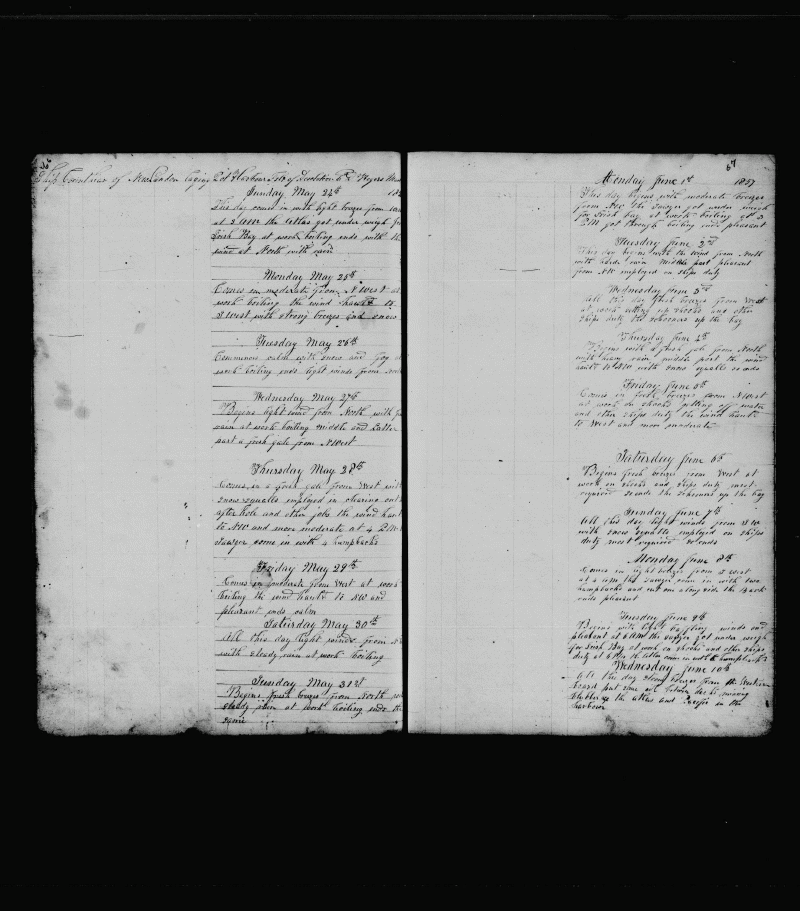 Ship Corinthian of New London laying Pot Harbour Isle of Desolation
Sunday May 24th 185
This day comes in with light breezes from
at 3 the Atlas got under weigh for
Irish Bay at work boiling ends with the
wind at North with rain
Monday May 25th
Comes in moderate from N West at
work boiling the wind hauld to
S West with strong breezes and snow
Tuesday May 26th
Commences calm with snow and fog at
work boiling ends light winds from
Wednesday May 27th
Begins light wind from North with
rain at work boiling middle and Latter
part a fresh gale from N West
Thursday May 28th
Comes in a fresh gale from West with
snow squalls employed in clearing out
after hole and other jobs the wind hauld
to NW and more moderate at 4 P M
Sawyer come in with 2 humpbacks
Friday May 29th
Comes in moderate from West at work
boiling the wind hauld to NW and
pleasant ends calm
Saturday May 30th
All this day light winds from
with steady rain at work boiling
Sunday May 31st
Begins fresh breezes from North
steady rain at work boiling ends the
same
67
Monday June 1st 1857
This day begins with moderate breezes
from the Sawyer got under weigh
for Irish bay at work boiling at 3
P M got through boiling ends pleasant
Tuesday June 2nd
This day begins with the wind from North
with hard rain Middle part pleasant
from NW employed on ships duty
Wednesday June 3rd
All this day fresh breezes from West
at work setting up shooks and other
ships duty the schooners up the bay
Thursday June 4th
Begins with a fresh gale from North
with heavy rain middle part the wind
hauld W NW with snow squalls so ends
Friday June 5th
Comes in fresh breezes from N West
at work on shooks getting off water
and other ships duty the wind hauld
to West and more moderate
Saturday June 6th
Begins fresh breezes from West at
work on shooks and ships duty most
required so ends the schooners up the bay
Sunday June 7th
All this day light winds from S W
with snow squalls employed on ships
duty most required so ends
Monday June 8th
Comes in light breezes from S West
at 2 the Sawyer come in with two
humpbacks and cut one along side the Bark
ends pleasant
Tuesday June 9th
Begins with light baffling winds and
pleasant at 6 AM the Sawyer got under weigh
for Irish Bay at work on shooks and other ships
duty at 6 the Atlas come in with humpbacks
Wednesday June 10th
All this day strong breezes from the Western
board put some oil below decks mincing
blubber the Atlas and in the
harbour